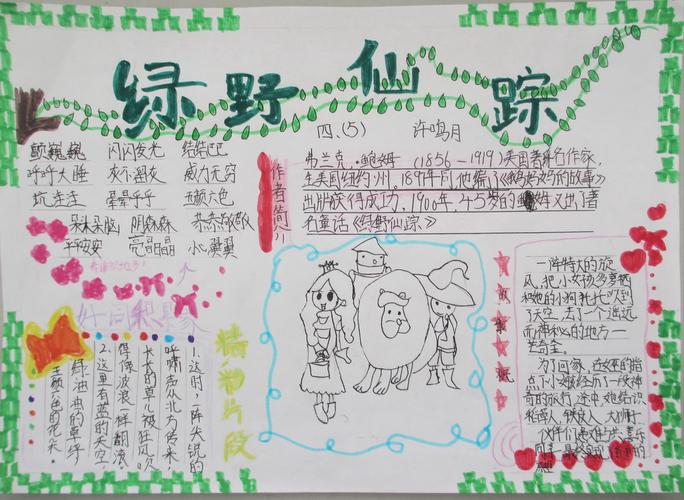 绿野仙踪
四.(5) 许鸣月
颤巍巍 闪闪发光 结结巴巴
呼呼大睡 威力无穷
坑洼洼 晕晕乎乎 五颜六色
呆头呆脑 阴森森 恭恭敬敬
平平安安 亮晶晶 小心翼翼
作者简介
弗兰克·鲍姆 (1856-1919)美国著名作家,
生美国纽约州,1897年同他编了《鹅妈妈的故事》
出版获得成功,1900年,45岁的鲍姆又出了著
名童话《绿野仙踪》
好词积累
精彩片段
1.这时,一阵尖锐的
呼啸声从北方传来,
长长的草儿被狂风吹
得像波浪一样翻滚。
2.这里有蓝的天空,
绿油油的草坪
五颜六色的花朵。
一阵特大的旋
风,把小女孩多萝茜
和她的小狗托托刮到
了天空,去了一个遥远
而神秘的地方一
为了回家,在女巫的指
点下小女孩经历了一段神
奇的旅行,途中她结识
稻草人,铁皮人、大狮子